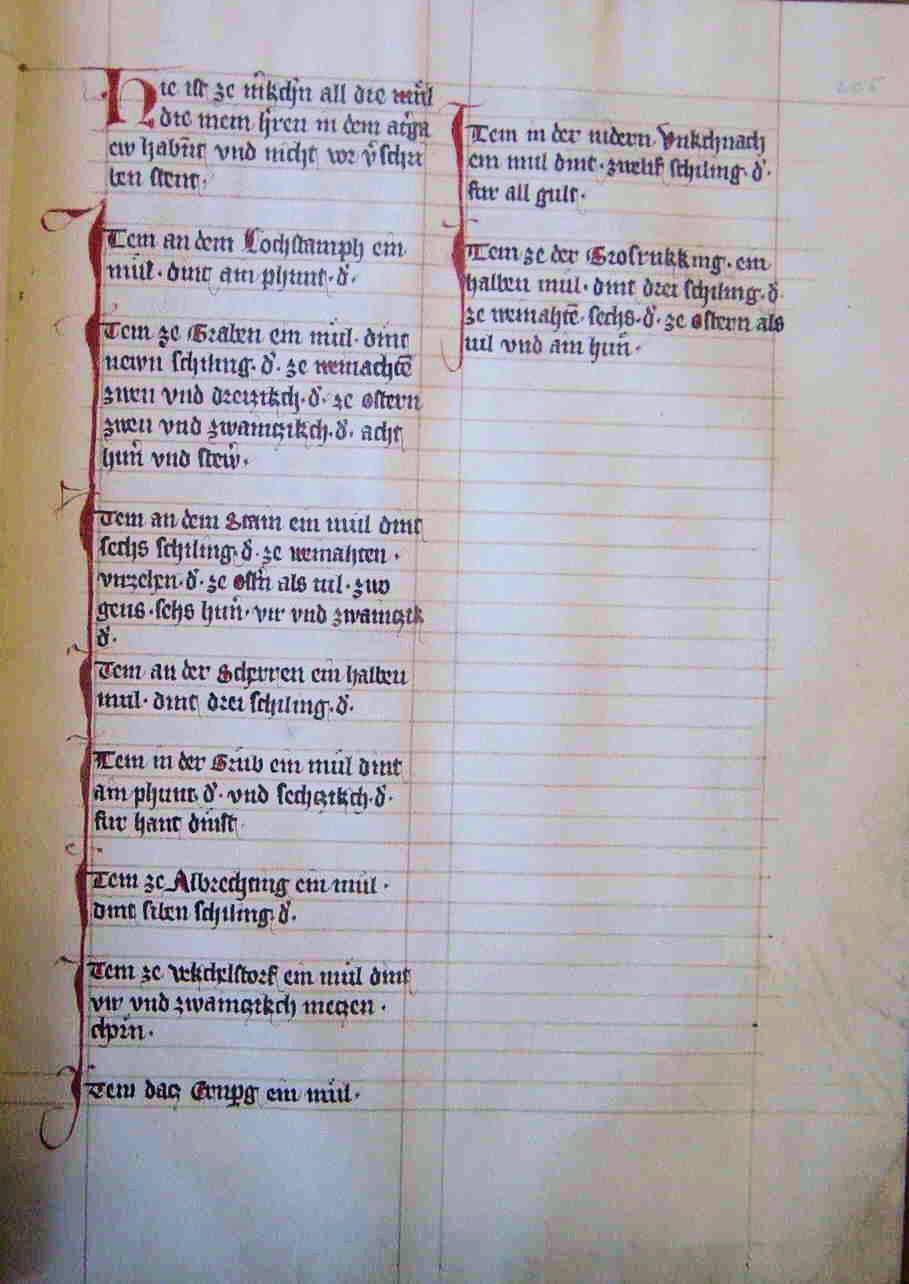 Hie ist ze mͤkchn̄ all die mül
die mein hr̄en in dem aiḡ
ew habn̄t vnd nicht vor v̄schri
ben stent·
Item an dem Lochstamph ein
mül· dint ain phunt· d̄·
Item ze Graben ein mül· dint
newn schiling· d̄· ze weinachtē
zwen vnd dreizikch· d̄· ze ostern
zwen vnd zwainczikch· d̄· acht
hun̄ vnd stew̄·
Item an dem Stain ein mül dint
sechs schiling· d̄· ze weinahten·
virzehen· d̄· ze ostn̄ als uil· zwo
gens· sehs hun̄· vir vnd zwainczik
d̄·
Item an der Scherren ein halben
mul· dint drei schiling· d̄·
Item in der Grüb ein mül dint
ain phunt d̄· vnd sechczikch· d̄·
für hant dinst
Item ze Albrechting ein mül·
dint siben schiling d̄·
Item ze vekchelstorf ein mül dint
vir vnd zwainczikch meczen·
chorn·
Item dacz Ernp̄g ein mül·
Item in der nidern Vnkchnach
ein mul dint· zwelif schiling· d̄·
für all gult·
Item ze der Grosrukking· ein
halben mül· dint drei schiling· d̄
ze weinahtē· sechs· d̄· ze ostern als
uil vnd ain hun̄·
205